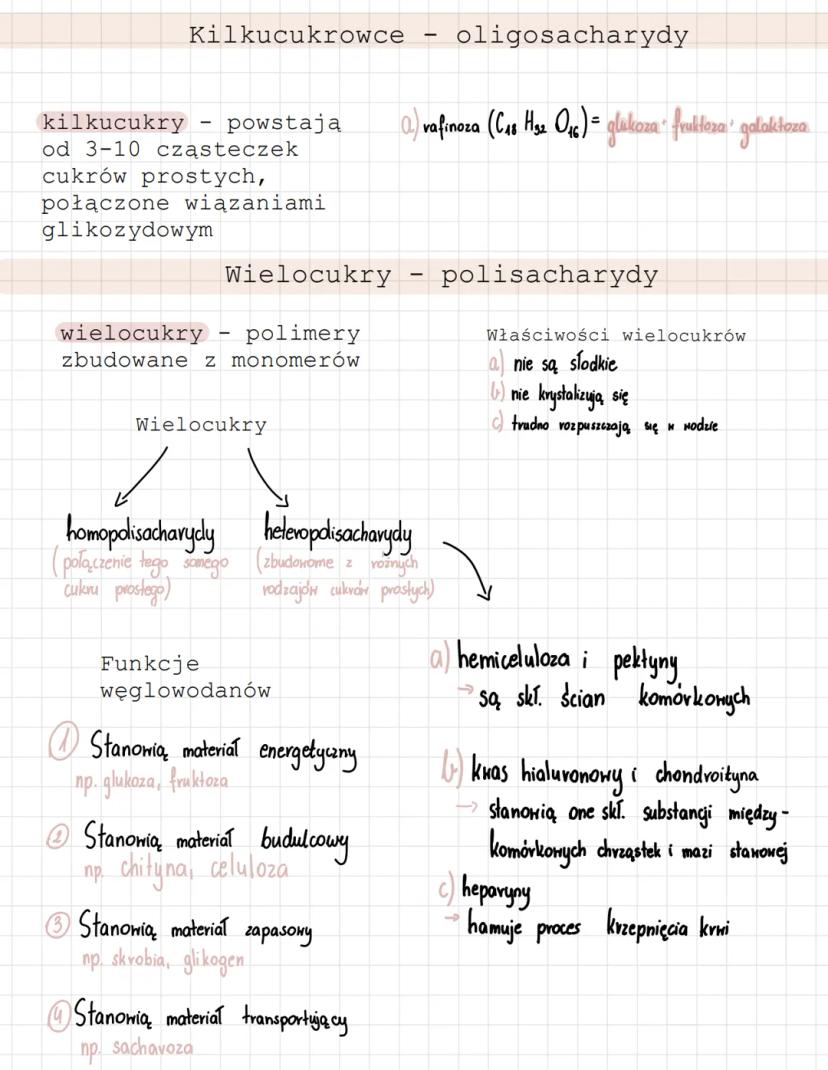 Kilkucukrowce - oligosacharydy
kilkucukry - powstają
od 3-10 cząsteczek
cukrów prostych,
połączone wiązaniami
glikozydowym
a) rafinoza (C18 H32 O16) = glukoza + fruktoza + galaktoza
Wielocukry - polisacharydy
wielocukry - polimery
zbudowane z monomerów
Właściwości wielocukrów
a) nie są słodkie
b) nie krystalizują się
c) trudno rozpuszczają się w wodzie
Wielocukry
homopolisacharydy
(połączenie tego samego
cukru prostego)
heteropolisacharydy
(zbudowane z rożnych
rodzajów cukrów prostych)
a) hemiceluloza i pektyny
→ są skł. ścian komórkowych
b) kwas hialuronowy i chondroityna
→ stanowią one skł. substancji między-
komórkowych chrząstek i mazi stawowej
c) heparyny
→ hamuje proces krzepnięcia krwi
Funkcje
węglowodanów
1 Stanowią materiał energetyczny
np. glukoza, fruktoza
2 Stanowią materiał budulcowy
np. chityna, celuloza
3 Stanowią materiał zapasowy
np. skrobia, glikogen
4 Stanowią materiał transportujący
np. sacharoza